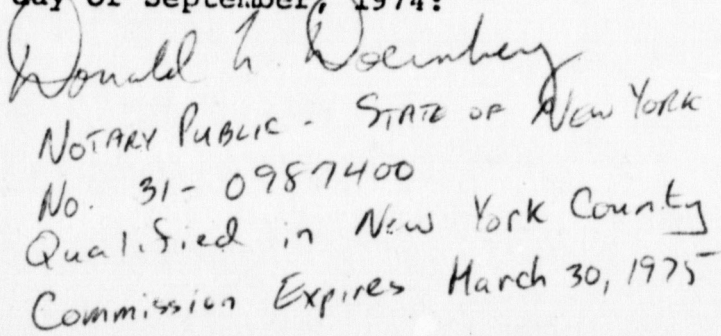 day of September, 1974.
Donald L. Doernberg
NOTARY PUBLIC - STATE OF NEW YORK
No. 31-0987400
Qualified in New York County
Commission Expires March 30, 1975